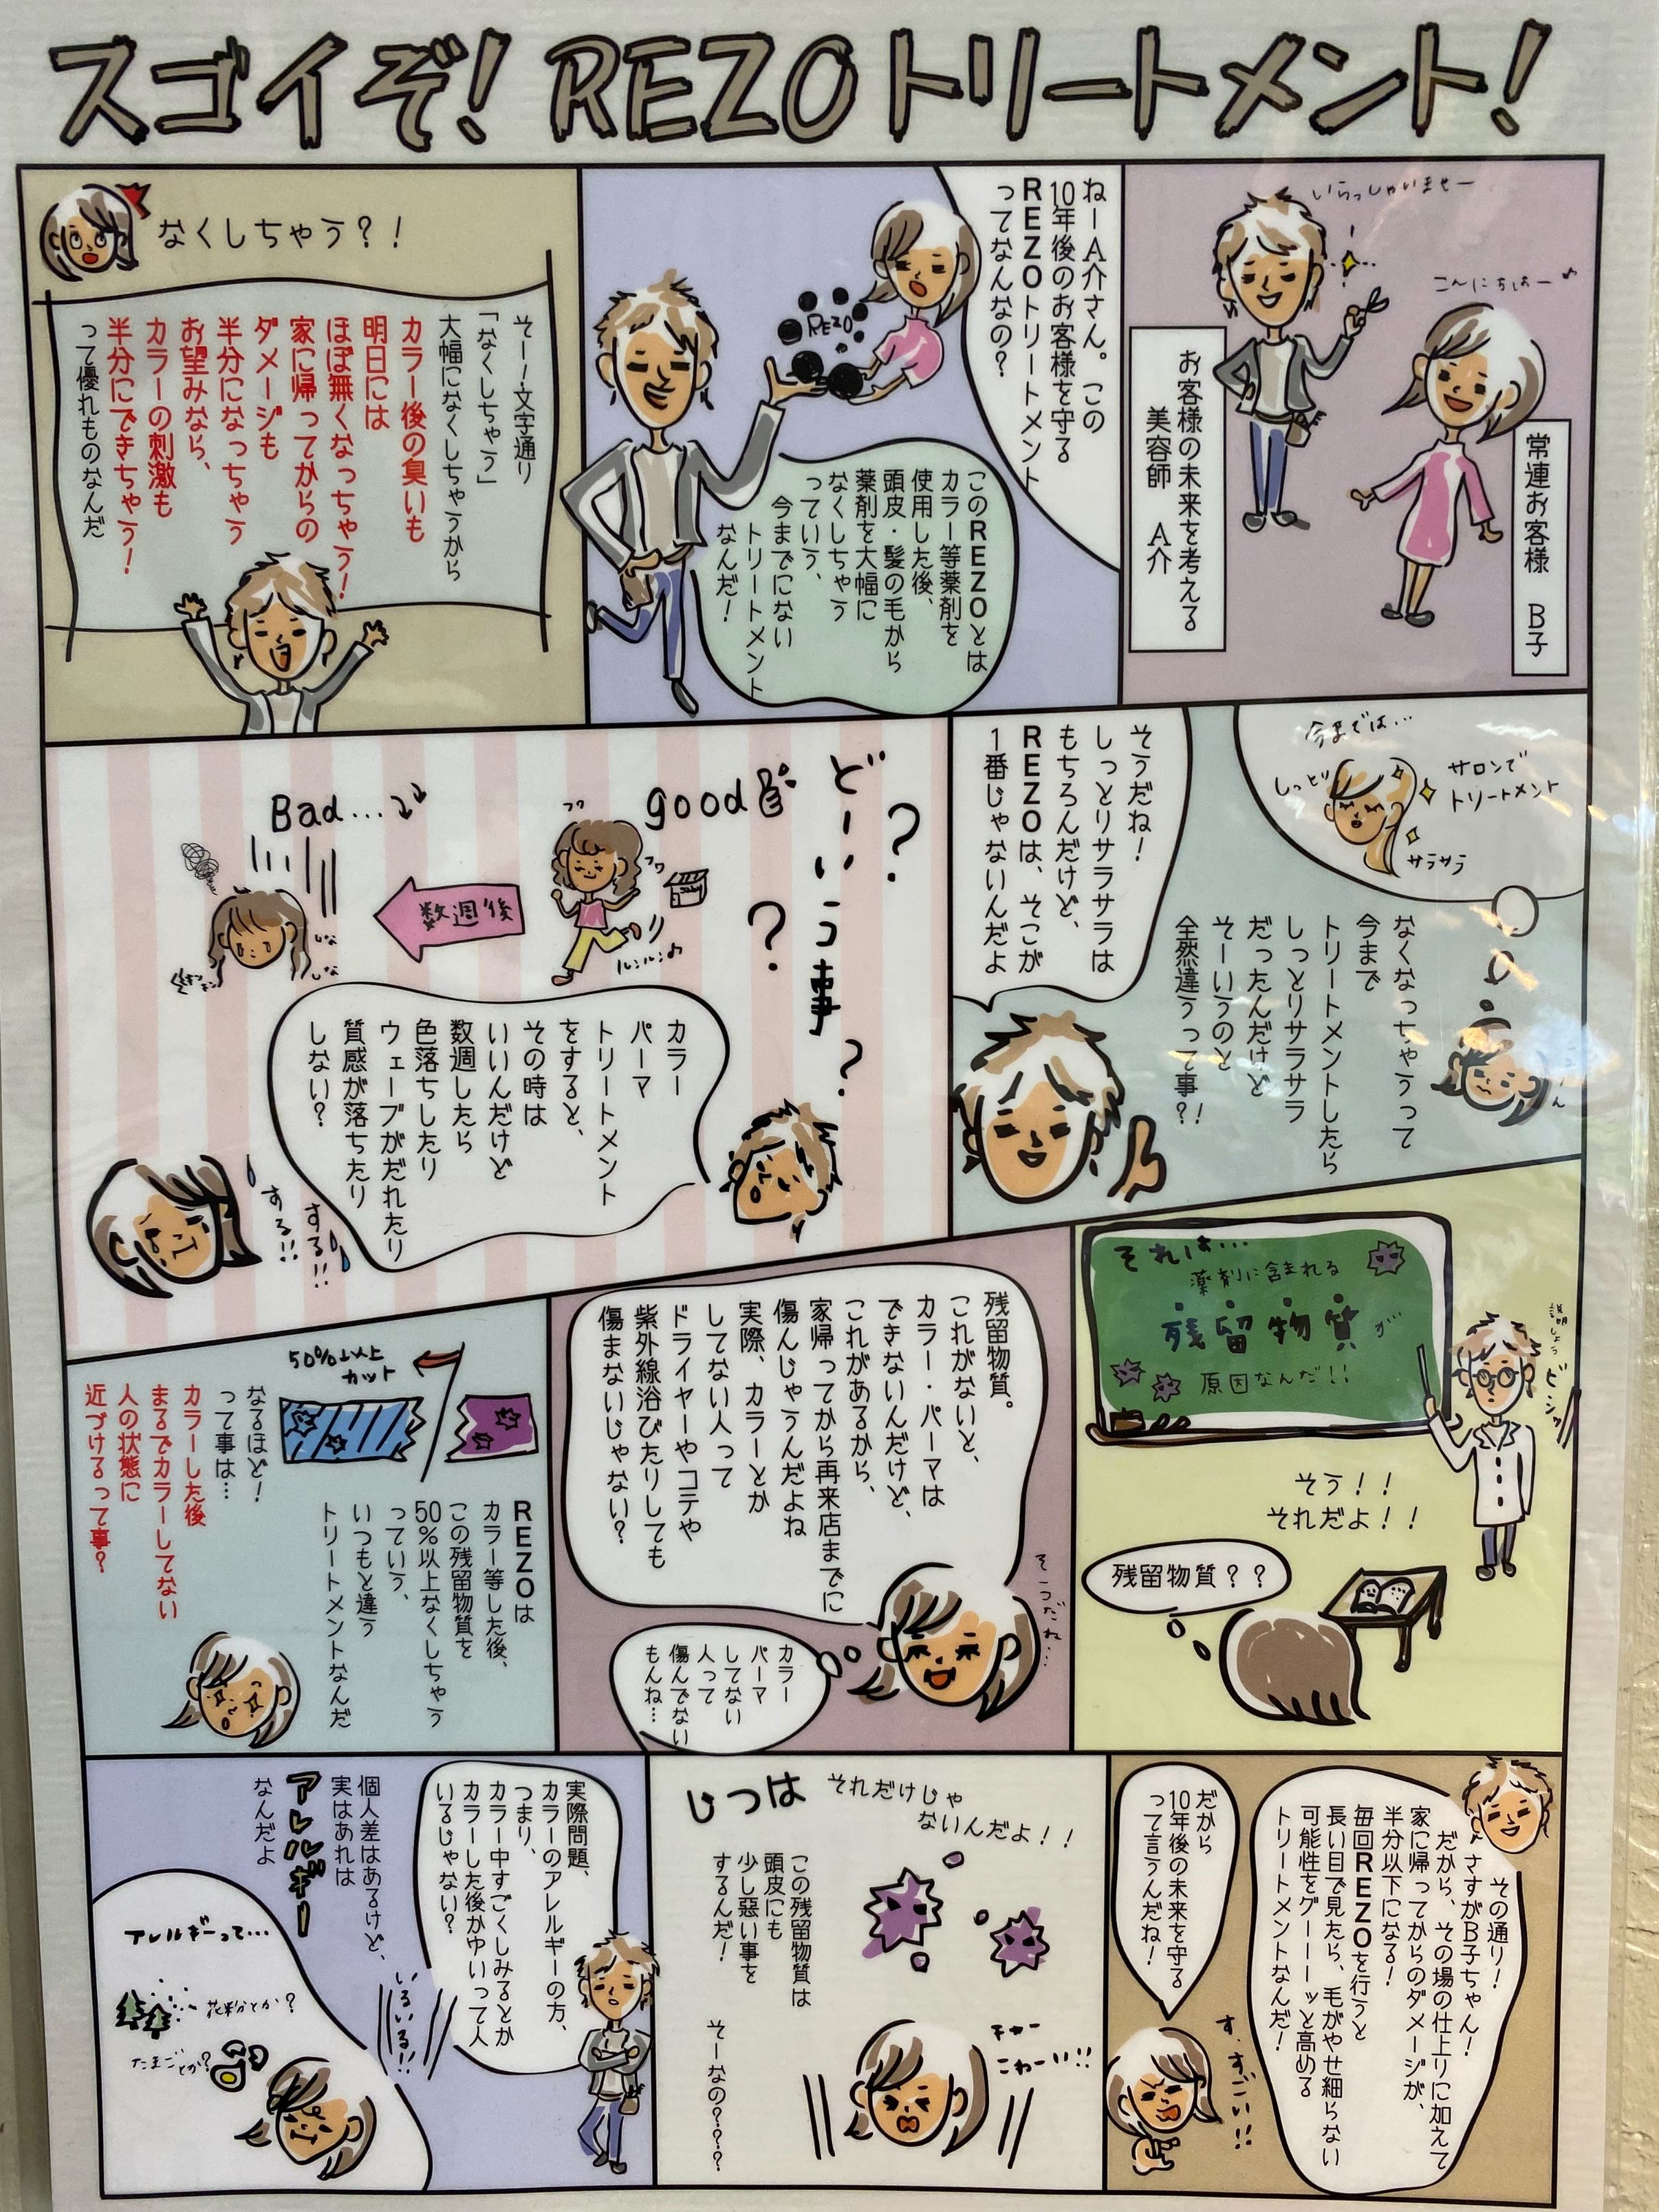 スゴイぞ！REZOトリートメント！
いらっしゃいませー
こんにちはー♪
常連お客様 B子
お客様の未来を考える
美容師 A介
ねーA介さん。この
10年後のお客様を守る
REZOトリートメント
ってなんなの？
REZO
このREZOとは
カラー等薬剤を
使用した後、
頭皮・髪の毛から
薬剤を大幅に
なくしちゃう
っていう、
今までにない
トリートメント
なんだ！
なくしちゃう？！
そー！文字通り
「なくしちゃう」
大幅になくしちゃうから
カラー後の臭いも
明日には
ほぼ無くなっちゃう！
家に帰ってからの
ダメージも
半分になっちゃう
お望みなら、
カラーの刺激も
半分にできちゃう！
って優れものなんだ
今までは…
サロンで
トリートメント
しっとり
サラサラ
なくなっちゃうって
今まで
トリートメントしたら
しっとりサラサラ
だったんだけど
そーいうのと
全然違うって事？！
そうだね！
しっとりサラサラは
もちろんだけど、
REZOは、そこが
1番じゃないんだよ
どーいう事？？？
good
フワ
フワ
ルンルン♪
数週後
Bad...
しな
しな
カラー
パーマ
トリートメント
をすると、
その時は
いいんだけど
数週したら
色落ちしたり
ウェーブがだれたり
質感が落ちたり
しない？
する！！
する！！
それは…
薬剤に含まれる
残留物質が
原因なんだ！！
説明しよう
ビシッ
そう！！
それだよ！！
残留物質？？
残留物質。
これがないと、
カラー・パーマは
できないんだけど、
これがあるから、
家帰ってから再来店までに
傷んじゃうんだよね
実際、カラーとか
してない人って
ドライヤーやコテや
紫外線浴びたりしても
傷まないじゃない？
そうだね…
カラー
パーマ
してない
人って
傷んでない
もんね…
50%以上
カット
REZOは
カラー等した後、
この残留物質を
50%以上なくしちゃう
っていう、
いつもと違う
トリートメントなんだ
なるほど！
って事は…
カラーした後
まるでカラーしてない
人の状態に
近づけるって事？
その通り！
さすがB子ちゃん！
だから、その場の仕上りに加えて
家に帰ってからのダメージが、
半分以下になる！
毎回REZOを行うと
長い目で見たら、毛がやせ細らない
可能性をグーーーッと高める
トリートメントなんだ！
だから
10年後の未来を守る
って言うんだね！
す、すごい！！
じつは
それだけじゃ
ないんだよ！！
この残留物質は
頭皮にも
少し悪い事を
するんだ！
そーなの？？？
チョー
こわーい！！
実際問題、
カラーのアレルギーの方、
つまり、
カラー中すごくしみるとか
カラーした後かゆいって人
いるじゃない？
いるいる！！
個人差はあるけど、
実はあれは
アレルギー
なんだよ
アレルギーって…
花粉とか？
たまごとか？